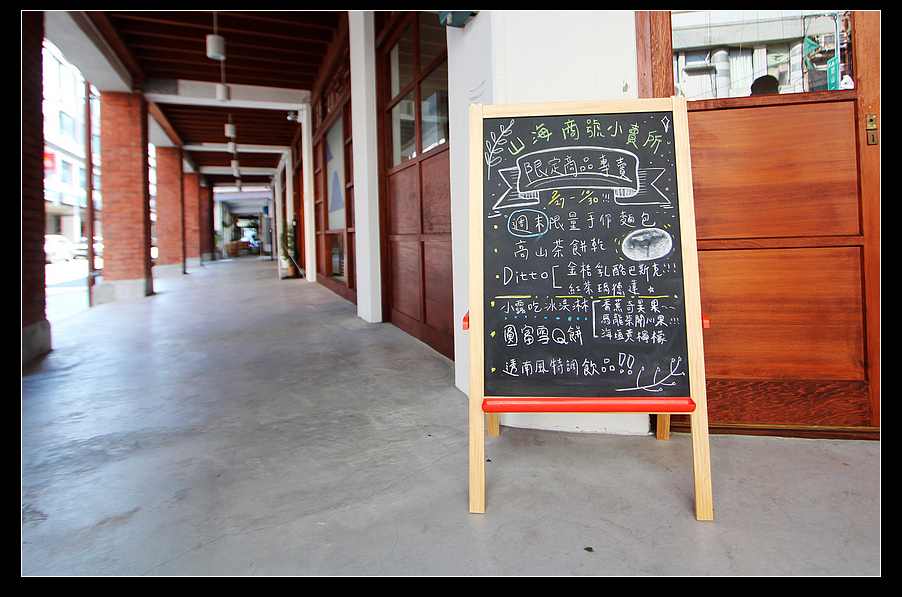 山海商號小賣所
限定商品專賣
週末限量手作麵包
高山茶餅乾
Ditto
金桔乳酪巴斯克!!!
紅茶瑪德蓮
小露吃冰淇淋
香蕉奇異果
馬龍茶開川果!!!
海鹽黃檸檬
圓富雪Q餅
透南風特調飲品!!